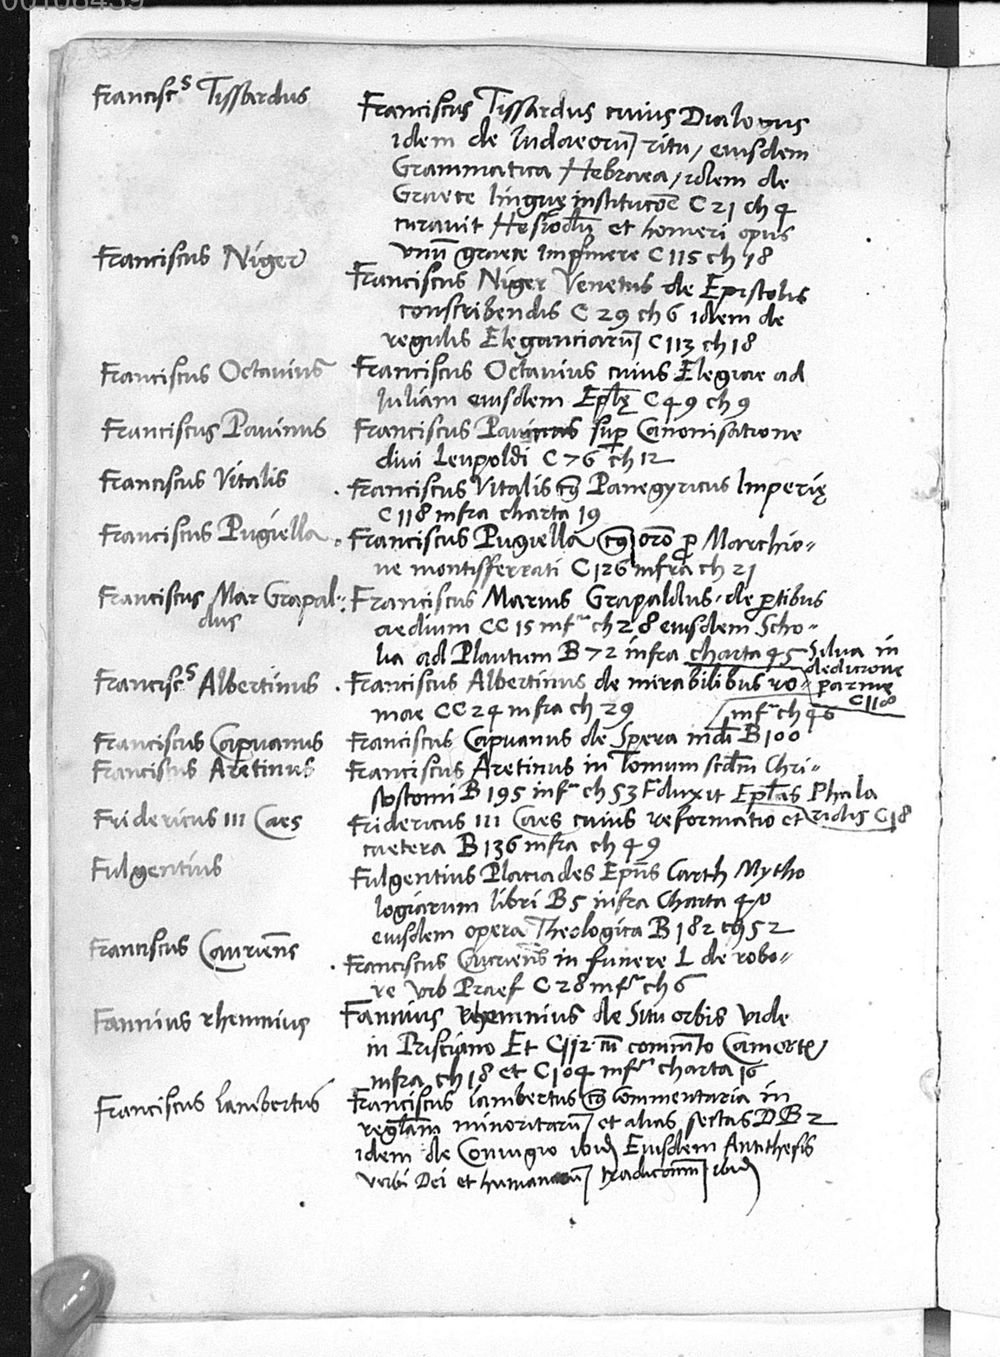 00108439
Francisc^s Tissardus
Franciscus Tissardus cuius Dialogus
idem de Iudaeorũ ritu, eiusdem
Grammatica Hebraea, idem de
Graece linguę C 21 ch 4
curavit Hesiodũ et homeri opus
graece Imprimere C 115 ch 18
Franciscus Niger
Franciscus Niger Venetus de Epistolis
conscribendis C 29 ch 6 idem de
regulis Eleganciarũ C 113 ch 18
Franciscus Octavius
Franciscus Octavius cuius Elegiae ad
Iuliam eiusdem C 49 ch 9
Franciscus Pavinus
Franciscus Pavinus sup Canonisatione
divi Leupoldi C 76 ch 12
Franciscus Vitalis
Franciscus Vitalis Panegyricus Imperię
C 118 infra charta 19
Franciscus Pugiella
Franciscus Pugiella orõ p Marchio=
ne montisferrati C 126 infra ch 21
Franciscus Mar Grapal=
dus
Franciscus Marius Grapaldus de ptibus
aedium CC 15 inf ch 28 eiusdem Scho=
lia ad Plautum B 72 infra charta 45 Silva in
deditione
Francisc^s Albertinus
Franciscus Albertinus de mirabilibus ro= parmę
C 118
mae CC 24 infra ch 29 inf ch 46
Franciscus Capuanus
Franciscus Capuanus de Spera B 100
Franciscus Aretinus
Franciscus Aretinus in Tomum Chri=
sostomi B 195 inf ch 53 Phala
Fridericus III Caes
Fridericus III Caes cuius reformatio et ridis C 18
caetera B 136 infra ch 49
Fulgentius
Fulgentius Placiades Carth Mytho
logiarum libri B 5 infra Charta 40
eiusdem opera Theologica B 182 52
Franciscus
Franciscus in funere L de robo=
re Urb Praef C 28 inf ch 6
Fannius rhemnius
Fannius rhemnius de Situ orbis vide
in Prisciano Et C 112
infra ch 18 et C 104 inf charta 16
Franciscus Lambertus
Franciscus Lambertus Commentaria in
minoritarũ et alias sectas D B 2
idem de Coniugio ibid Eiusdem Antithesis
verbi Dei et ibid